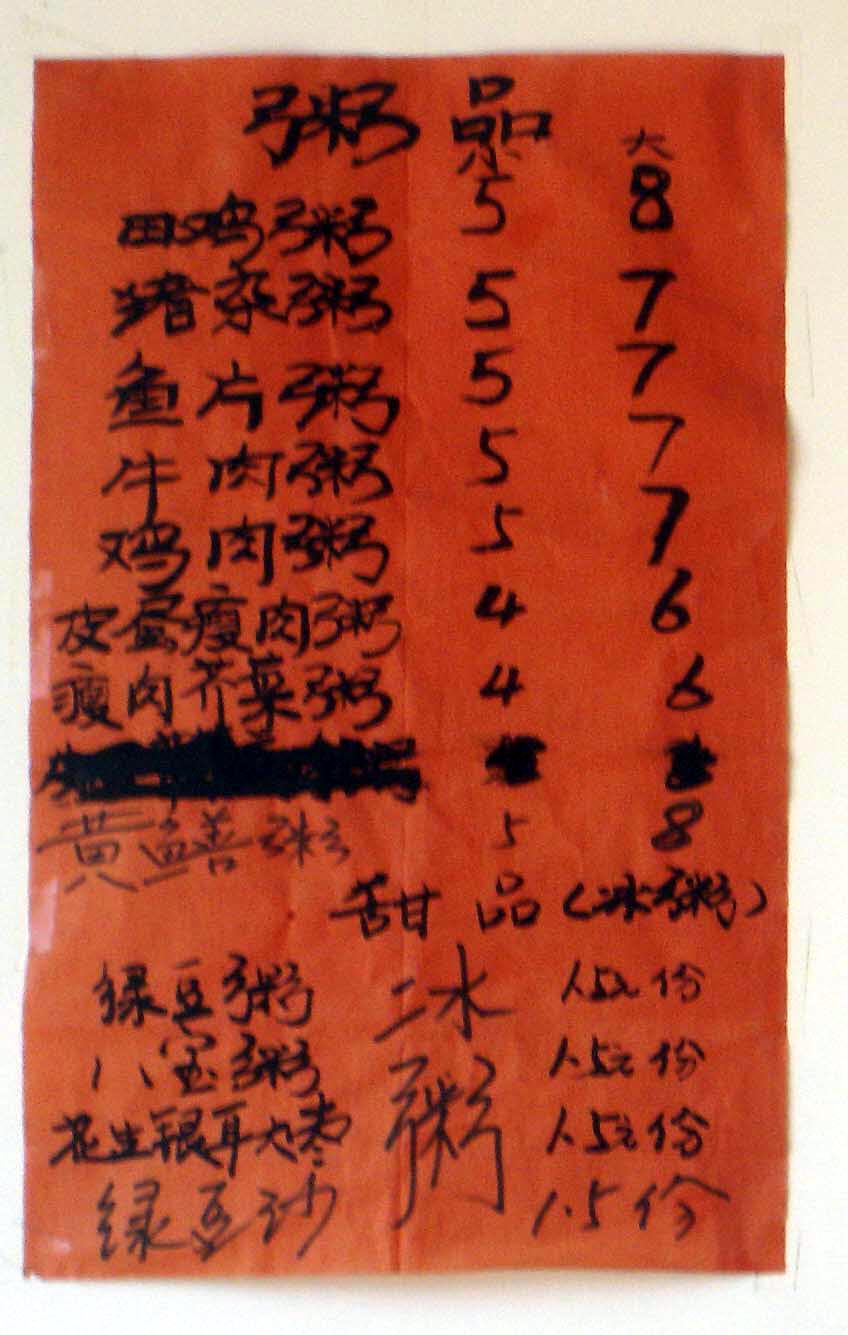 粥品
小 大
田鸡粥 5 8
猪杂粥 5 7
鱼片粥 5 7
牛肉粥 5 7
鸡肉粥 5 7
皮蛋瘦肉粥 4 6
瘦肉芥菜粥 4 6
黄鳝粥 5 8
甜品(冰粥)
绿豆粥 1.5元份
八宝粥 1.5元份
花生银耳大枣 1.5元份
绿豆沙 1.5份
冰粥